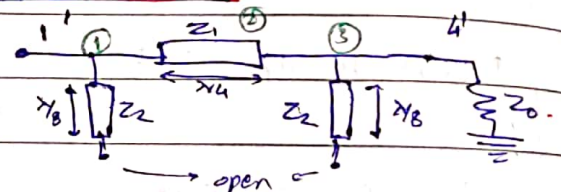 1' ① Z₁ ② ③ 4'
λ/4
λ/8 Z₂ Z₂ λ/8 Z₀.
open